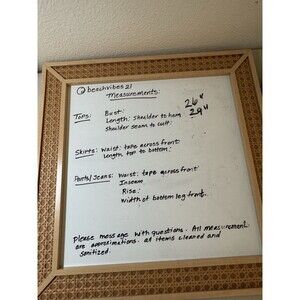 @beachvibes21
Measurements:
Tops: Bust: 26"
Length: Shoulder to hem 29"
Shoulder seam to cuff:
Skirts: Waist: tape across front:
Length top to bottom:
Pants/Jeans: Waist: tape across front:
Inseam:
Rise:
Width of bottom leg front:
Please message with questions. All measurements
are approximations. all items cleaned and
sanitized.